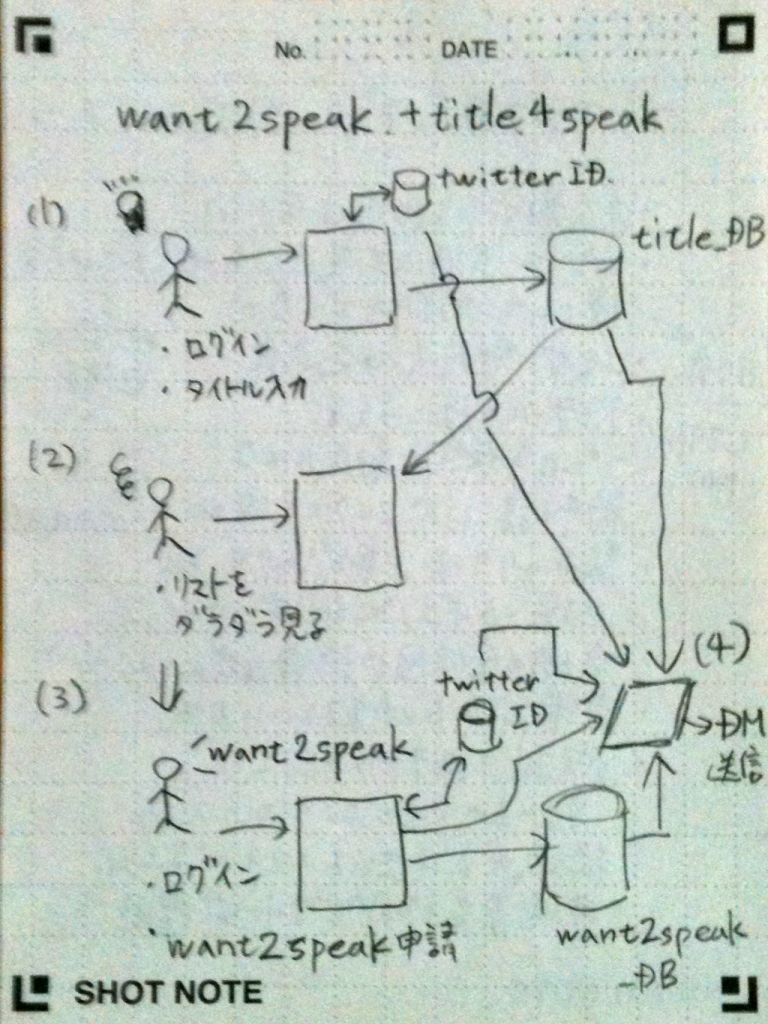 No. DATE
want2speak + title4speak
(1)
twitter ID.
title_DB
・ログイン
・タイトル入力
(2)
・リストを
ダラダラ見る
(3)
twitter
ID
(4)
→DM
送信
want2speak
・ログイン
・want2speak申請
want2speak
_DB
SHOT NOTE